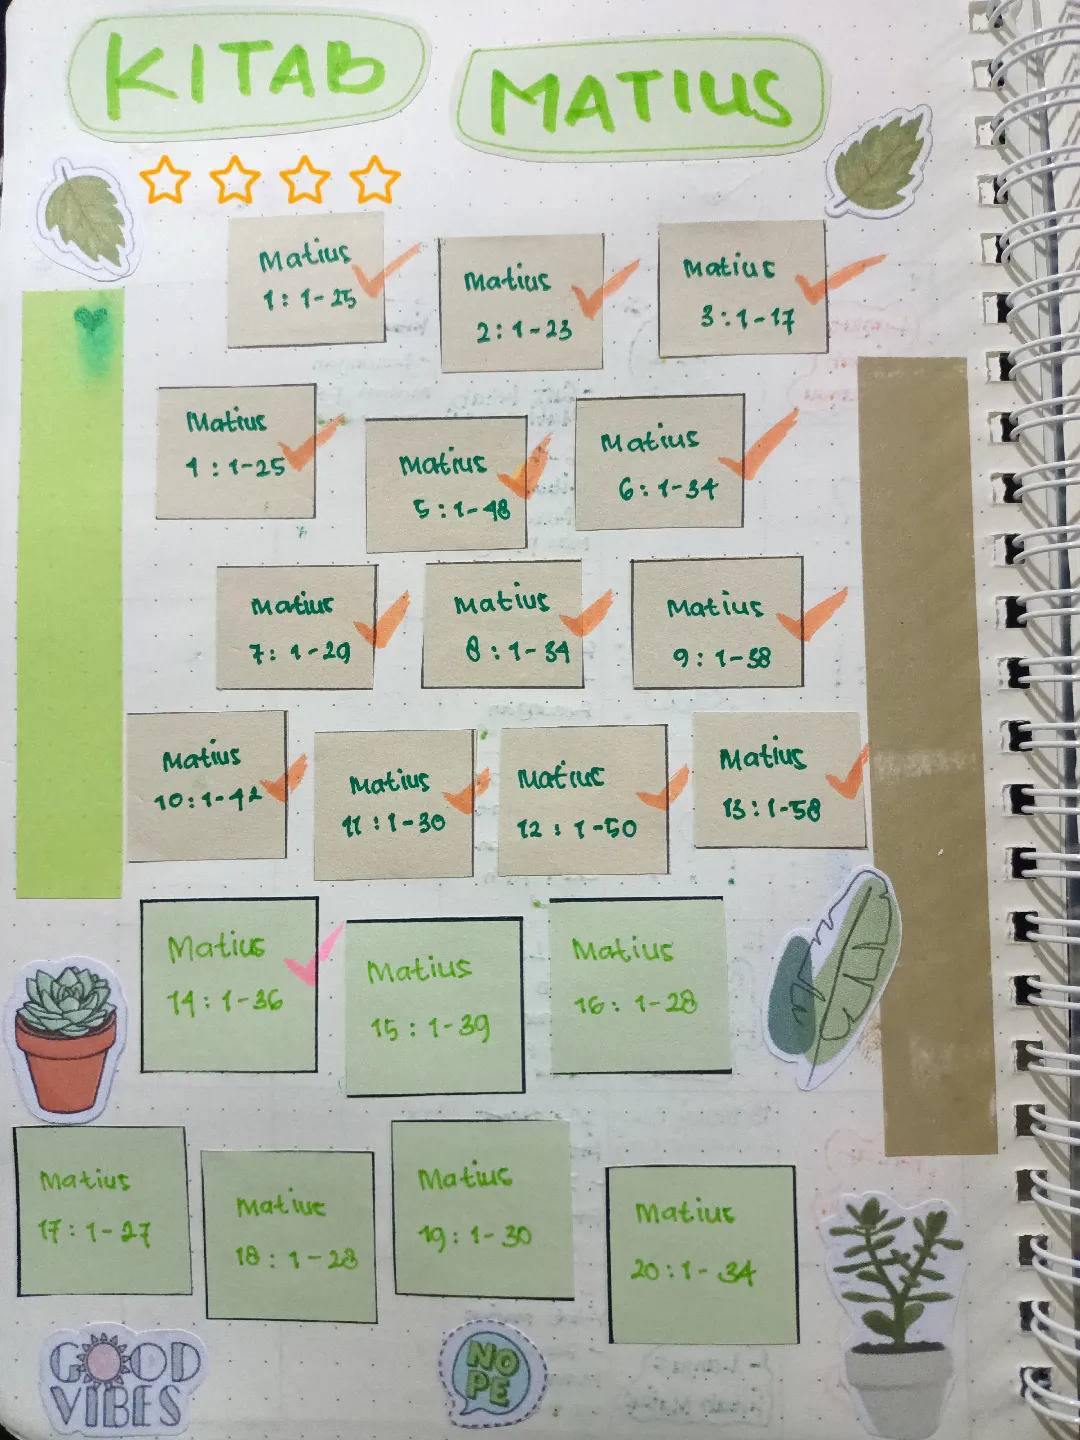 KITAB MATIUS
Matius
1 : 1-25
Matius
2 : 1-23
Matius
3 : 1-17
Matius
4 : 1-25
Matius
5 : 1-48
Matius
6 : 1-34
Matius
7 : 1-29
Matius
8 : 1-34
Matius
9 : 1-38
Matius
10 : 1-42
Matius
11 : 1-30
Matius
12 : 1-50
Matius
13 : 1-58
Matius
14 : 1-36
Matius
15 : 1-39
Matius
16 : 1-28
Matius
17 : 1-27
Matius
18 : 1-28
Matius
19 : 1-30
Matius
20 : 1-34
GOOD
VIBES
NO
PE